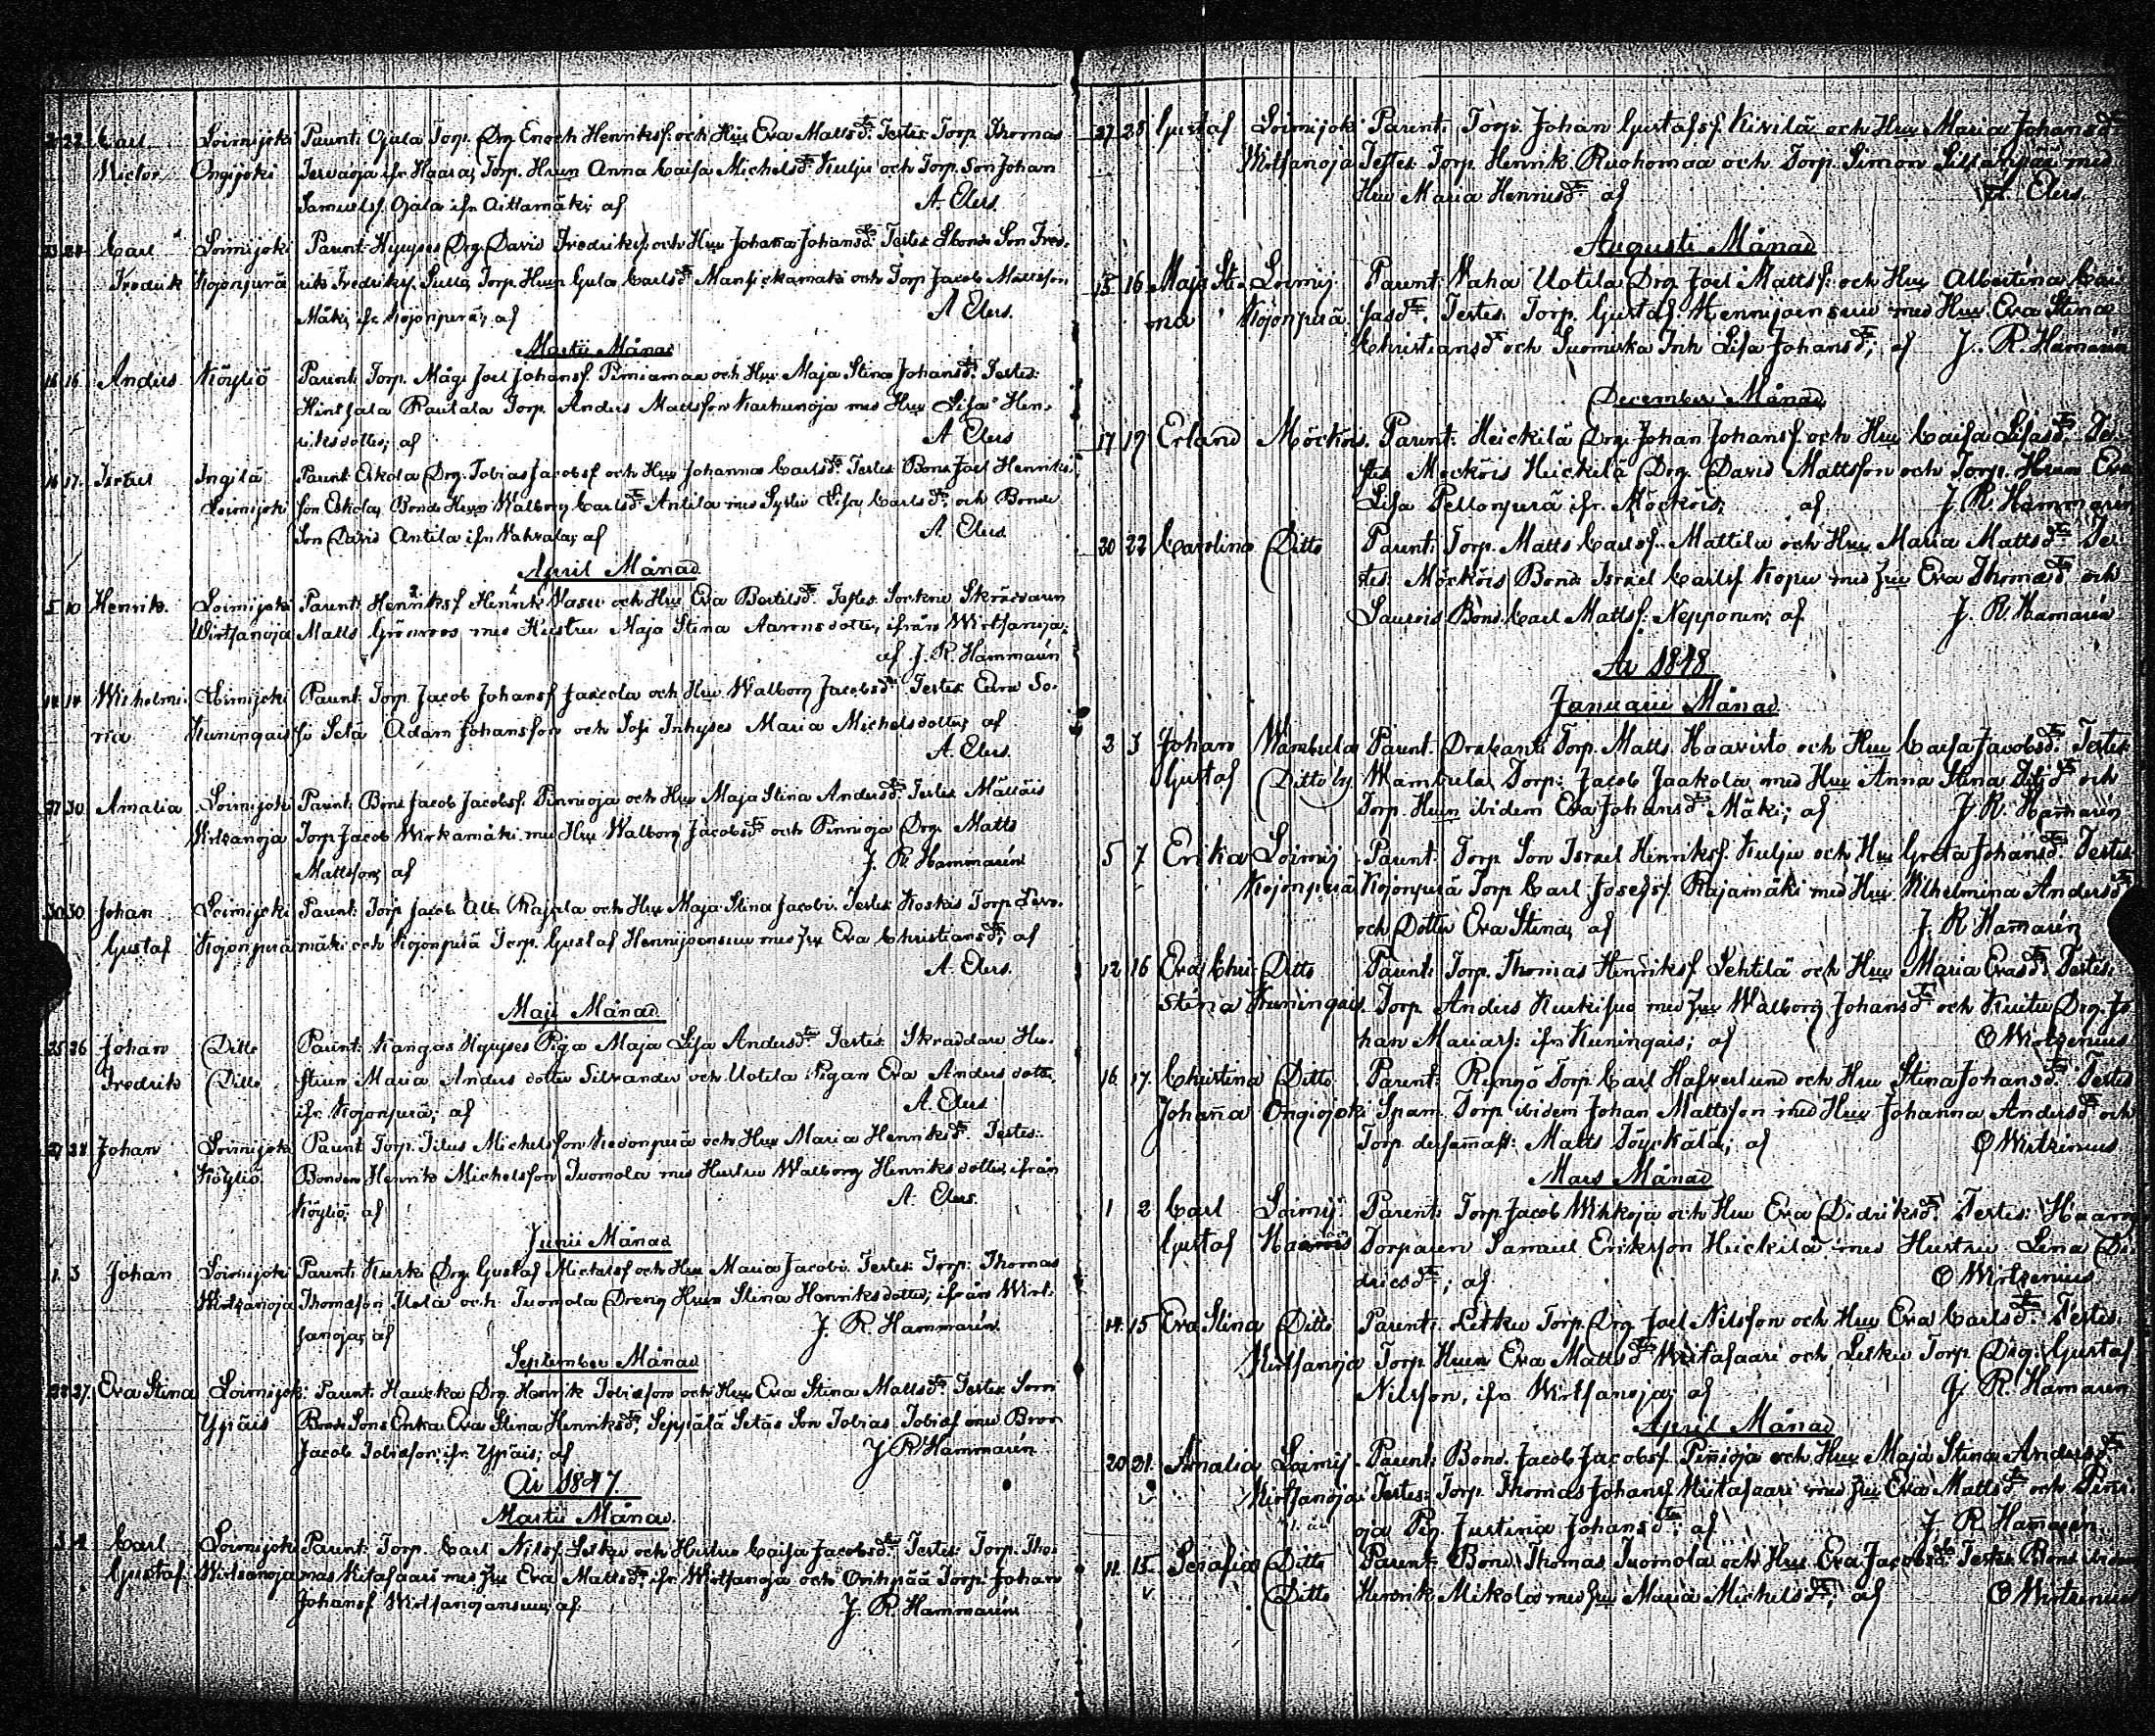 22 Carl Loimijoki Parent: Ojala Torp. Drg Enoch Henriksf. och Hu Eva Mattsdr. Testes: Torp. Thomas
Victor Ongijoki Tervaoja ifr. Haara, Torp. Hun Anna Caisa Michelsdr. Kulju och Torp. Son Johan
Samuelsf. Ojala ifn Aittamäki; af A. Elers.
Carl Loimijoki Parent: Hyryses Drg. David Fredriksf och Hu Johana Johansdr. Testes: Bonde Son Fred-
Fredrik Kojonperä rik Fredriksf. Torp. Hun Gula Carlsdr. Mansickamäki och Torp Jacob Mattsson
Mäki, ifr. Kojonperä; af A Elers.
Martii Månad
16 16 Anders Köyliö Parent: Torp. Måg Joel Johansf. Pimiamaa och Hu Maja Stina Johansdr. Testes:
Hintsala Rautala Torp. Anders Mattsson Karhunoja med Hu Lisa Hen-
riksdotter; af A Elers
16 17 Ingilä Parent: Eskola Drg. Tobias Jacobsf och Hu Johanna Carlsdr. Testes: Bond Joel Henriks-
Loimijoki son Eskola, Bonde Hun Walborg Carlsdr. Antila med Syster Lisa Carlsdr. och Bonde
Son David Antila ifrn Vahvala; af A. Elers
April Månad
5 10 Henrik Loimijoki Parent: Henriksf Henrik Vasu och Hu Eva Bertilsdr. Testes: Sockne Skräddaren
Wirtsanoja Matts Grönroos med Hustru Maja Stina Aaronsdotter, ifrån Wirtsanoja;
af J. R. Hammarén
14 14 Wilhelmi- Loimijoki Parent: Torp. Jacob Johansf Jaccola och Hu Walborg Jacobsdr. Testes: Eura So-
na Kuningais Adam Johansson och Inhyses Maria Michelsdotter; af
A. Elers.
27 30 Amalia Loimijoki Parent: Bond Jacob Jacobsf. Pinnioja och Hu Maja Stina Andersdr. Testes:
Wirtsanoja Torp Jacob Wirkamäki med Hu Walborg Jacobsdr. och Pinnioja Drg. Matts
Mattsson; af J. R. Hammarén
30 30 Johan Loimijoki Parent: Torp Jacob Rajala och Hu Maja Stina Jacobi. Testes: Koskis Torp
Gustaf Kojonperä mäki och Kojonperä Torp. Gustaf Hennijoensuu med Hu Eva Christiansdr.; af
A. Elers.
Maji Månad
25 26 Johan Ditto Parent: Kangas Hyryses Piga Maja Lisa Andersdr. Testes: Skräddare Hu-
Fredrik Ditto strun Maria Anders dotter Silvander och Uotila Pigan Eva Anders dotter,
ifr. Kojonperä; af A. Elers
27 28 Johan Loimijoki Parent: Torp. Titus Michelsson Kedonperä och Hu Maria Henriksdr. Testes:
Köyliö Bonden Henrik Michelsson Tuomola med Hustru Walborg Henriksdotter, ifrån
Köyliö; af A. Elers
Junii Månad
1 3 Johan Loimijoki Parent: Kurki Drg. Gustaf Michelsf och Hu Maria Jacobi. Testes: Torp: Thomas
Wirtsanoja Thomasson Uola och Tuomola Dreng Hun Stina Henriksdotter; ifrån Wirt-
sanoja; af J. R. Hammarén
September Månad
27 Eva Stina Loimijoki Parent: Haucka Drg. Henrik Tobiasson och Hu Eva Stina Mattsdr. Testes:
Ypäis Bonde Sons Enka Eva Stina Henriksdr., Seppälä Son Tobias Tobiasf med Bror
Jacob Tobiasson, ifr. Ypäis; af J R Hammarén
År 1847.
Martii Månad
3 4 Carl Loimijoki Parent: Torp. Carl Nilsf Letku och Hustru Caisa Jacobsdr. Testes: Torp. Tho-
Gustaf Wirtsanoja mas Kitasaari med Hu Eva Mattsdr., ifr. Wirtsanoja och Oripää Torp: Johan
Johansf Wirtsanojansuu; af J. R. Hammarén
27 28 Gustaf Loimijoki Parent: Torp. Johan Gustafsf. Kivilä och Hu Maria Johansdr.
Wirtsanoja Testes: Torp. Henrik Ruohomaa och Torp. Simon med
Hu Maria Henricsdr. af A. Elers.
Augusti Månad
15 16 Maja Sti- Loimij. Parent: Vaha Uotila Drg Joel Mattsf. och Hu Albertina Cai-
na Kojonperä sasdr. Testes: Torp. Gustaf Hennijoensuu med Hu Eva Stina
Christiansdr och Suomiska Inh Lisa Johansdr; af J. R. Hamarén
December Månad
17 19 Erland Möckois. Parent: Heickilä Drg. Johan Johansf. och Hu Caisa Lisasdr. Te-
stes: Möckois Heickilä Drg. David Mattsson och Torp. Hun Eva
Lisa Peltonperä ifr. Möckois; af J R Hammarén
20 22 Carolina Ditto Parent: Torp. Matts Carlsf. Mattila och Hu Maria Mattsdr. Tes-
tes: Möckois Bond Israel Carlsf Kopu med Hu Eva Thomasdr och
Bond. Carl Mattsf. Nepponen; af J. R. Hamarén
År 1848.
Januarii Månad
2 3 Johan Wambula Parent: Drabant Torp. Matts Haavisto och Hu Caisa Jacobsdr. Testes:
Gustaf Ditto by Wambula Torp: Jacob Jaakola med Hu Anna Stina och
Torp. Hun ibidem Eva Johansdr Mäki; af J. R. Hamarén
5 7 Erika Loimij Parent: Torp Son Israel Henriksf. Kulju och Hu Greta Johansdr. Testes:
Kojonperä Kojonperä Torp Carl Josefsf. Rajamäki med Hu Wilhelmina Andersdr
och Dotter Eva Stina; af J. R Hamarén
12 16 Eva Chri- Ditto Parent: Torp. Thomas Henriksf Lehtilä och Hu Maria Evasdr. Testes:
stina Kuningais. Torp Anders Kurkisuo med Hu Walborg Johansdr och Drg. Jo-
han Mariasf: ifrn Kuningais; af O Wirtzenius
16 17 Christina Ditto Parent: Torp. Carl Hafverlund och Hu Stina Johansdr. Testes
Johana Ongiojoki Torp ibidem Johan Mattsson med Hu Johanna Andersdr och
Torp dersamast: Matts Töyckälä; af O Wirtzenius
Mars Månad
1 2 Carl Loimij. Parent: Torp Jacob Wihkoja och Hu Eva Didriksdr. Testes: Haaro
Gustaf Torparen Samuel Eriksson Heickilä med Hustru Lena Di-
dricsdr; af O Wirtzenius
14 15 Eva Stina Ditto Parent: Letku Torp. Drg Joel Nilsson och Hu Eva Carlsdr. Testes:
Wirtsanoja Torp Huen Eva Mattsdr Kiitasaari och Letku Torp Drg. Gustaf
Nilsson, ifr. Wirtsanoja; af J. R. Hamarén
April Månad
20 21 Amalia Loimij. Parent: Bond. Jacob Jacobsf Pinioja och Hu Maja Stina Andersdr.
Wirtsanoja Testes: Torp. Thomas Johansf Kiitasaari med Hu Eva Mattsdr och Pini-
oja Pig. Justina Johansdr; af J. R. Hamarén
11 15 Serafia Ditto Parent: Bond. Thomas Tuomola och Hu Eva Jacobsdr. Testes: Bond ibidem
Ditto Henrik Mikola med Hu Maria Michelsdr; af O Wirtzenius